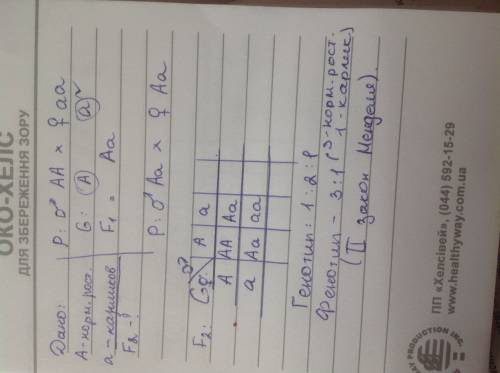 ОКО-ХЕЛС
ДЛЯ ЗБЕРЕЖЕННЯ ЗОРУ
Дано:
А-норм.рост.
а-карликов
F2-?
P: ♂ AA × ♀ aa
G: A a
F1 = Aa
P: ♂ Aa × ♀ Aa
F2:
♀ ♂ A a
A AA Aa
a Aa aa
Генотип: 1:2:1
Фенотип - 3:1 (3-норм.рост.
1-карлик)
(II закон Менделя).
ПП «Хелсівей», (044) 592-15-29
www.healthyway.com.ua
AY PRODUCTION INC.